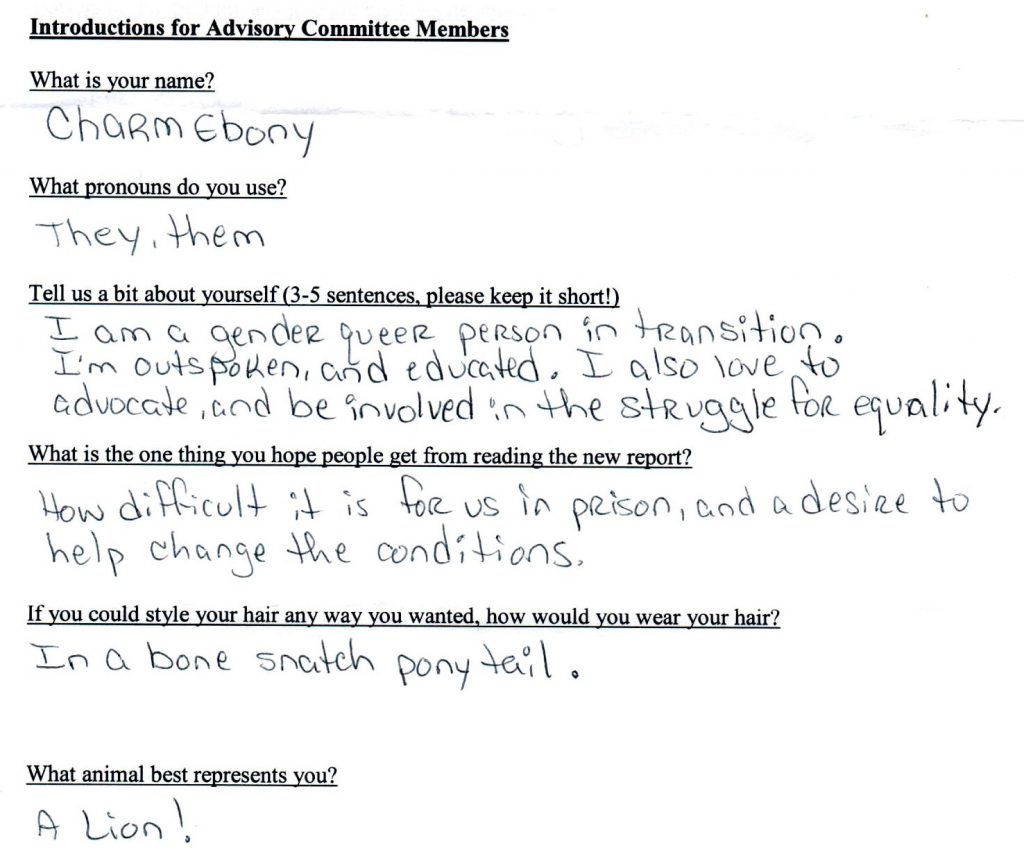 Introductions for Advisory Committee Members
What is your name?
Charm Ebony
What pronouns do you use?
They, them
Tell us a bit about yourself (3-5 sentences, please keep it short!)
I am a gender queer person in transition.
I'm outspoken, and educated. I also love to
advocate, and be involved in the struggle for equality.
What is the one thing you hope people get from reading the new report?
How difficult it is for us in prison, and a desire to
help change the conditions.
If you could style your hair any way you wanted, how would you wear your hair?
In a bone snatch pony tail.
What animal best represents you?
A Lion!